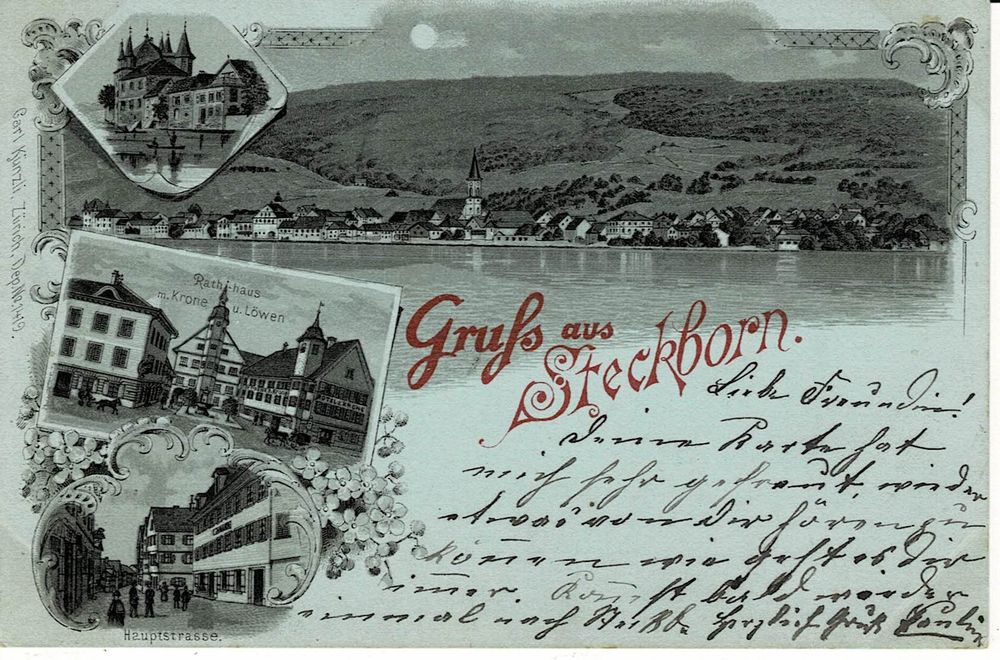 Carl Künzli, Zürich, Dep. No. 1419.
Rathhaus
m. Krone u. Löwen
HOTEL KRONE
Gruss aus
Steckborn.
Liebe Freundin!
Deine Karte hat
mich sehr gefreut, wieder
etwas von dir hören zu
können wie geht es dir
immer. Kommst bald wieder
einmal nach Steckb. Herzlich Gruß Paulin
Hauptstrasse.